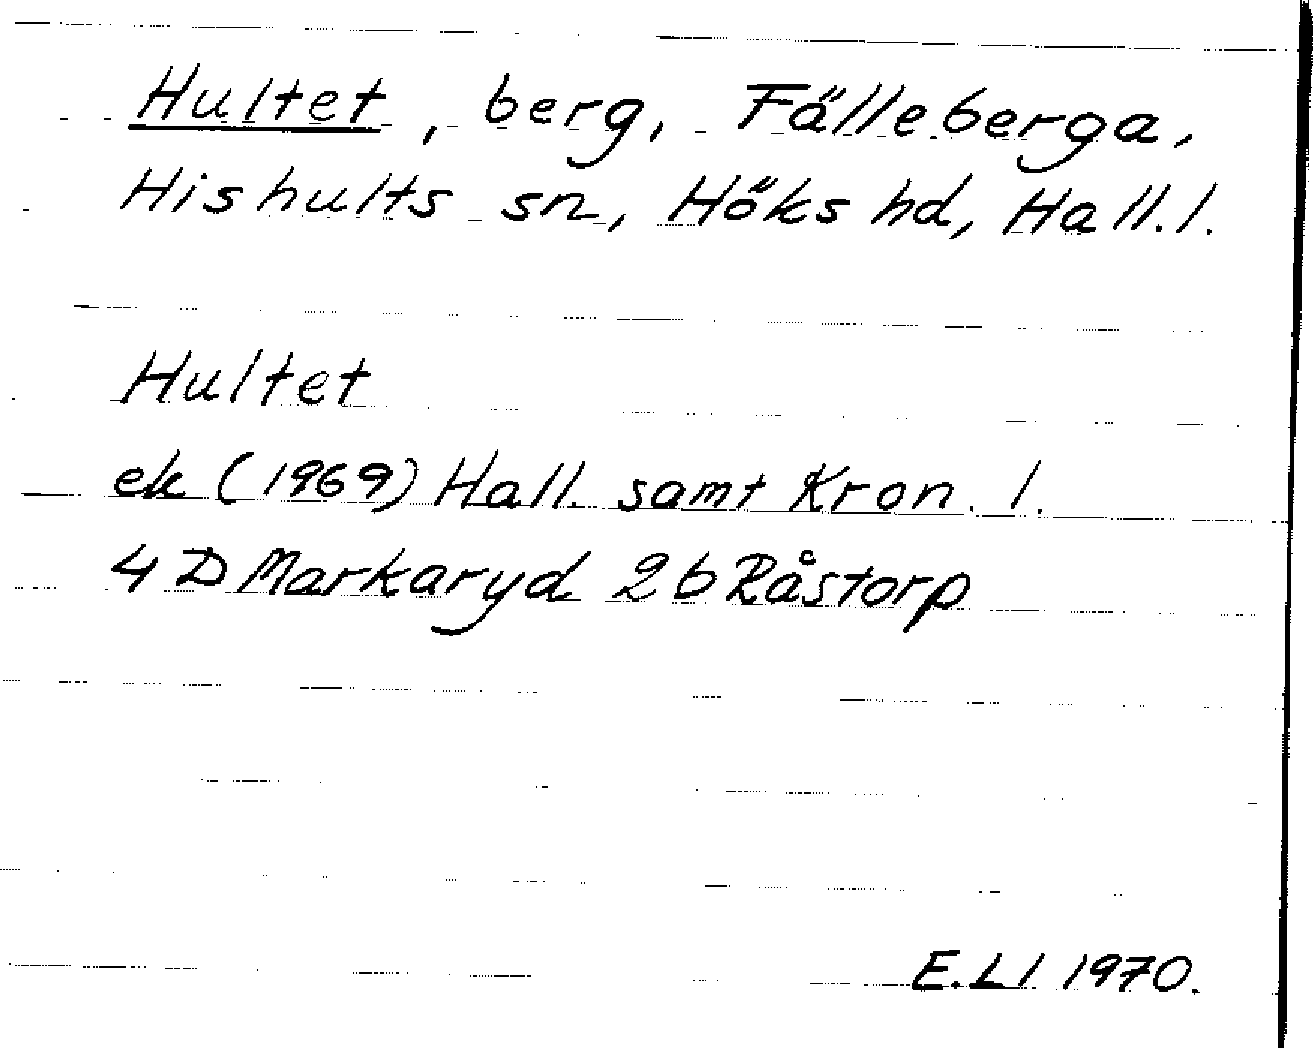 Hultet, berg, Fälleberga,
Hishults sn, Höks hd, Hall. l.
Hultet
ek (1969) Hall. samt Kron. l.
4 D Markaryd 2 b Råstorp
E. Ll 1970.